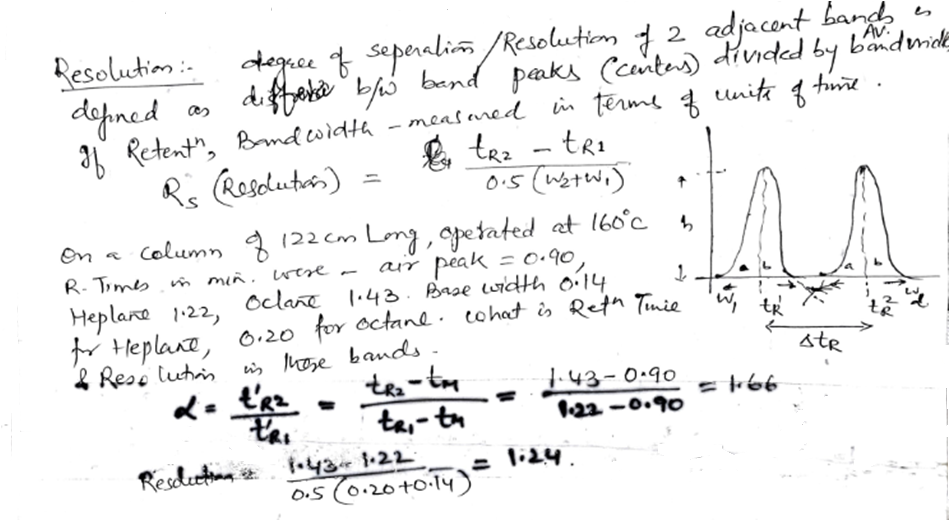 Resolution :- degree of seperation /Resolution of 2 adjacent bands is
defined as diffrence b/w band peaks (centers) divided by Av. bandwidth
If Retentⁿ, Bandwidth - measured in terms of units of time.
Rs (Resolution) = tR2 - tR1 / 0.5 (W2+W1)
On a column of 122 cm Long, operated at 160°C
R. Times in min. were - air peak = 0.90,
Heptane 1.22, Octane 1.43. Base width 0.14
for Heptane, 0.20 for octane. what is Retⁿ Time
& Resolution in these bands.
h
a b a b
W1 tR1 tR2 W2
ΔtR
α = t'R2 / t'R1 = tR2 - tM / tR1 - tM = 1.43 - 0.90 / 1.22 - 0.90 = 1.66
Resolution = 1.43 - 1.22 / 0.5 (0.20+0.14) = 1.24.